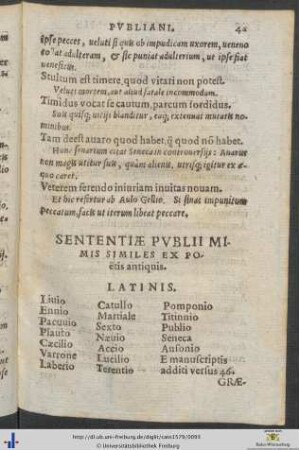 PVBLIANI. 42
ipse peccet, ueluti si quis ob impudicam uxorem, ueneno
tollat adulteram, & sic puniat adulterium, ut ipse fiat
ueneficus.
Stultum est timere, quod vitari non potest.
Velut mortem, aut aliud fatale incommodum.
Timidus vocat se cautum, parcum sordidus.
Suis quisq; uitijs blanditur, eaq; extenuat mutatis no-
minibus.
Tam deest auaro quod habet, q̃ quod nō habet.
Hunc senarium citat Seneca in controuersijs: Auarus
non magis utitur suis, quàm alienis, utrisq; igitur ex æ-
quo caret.
Veterem ferendo iniuriam inuitas nouam.
Et hic refertur ab Aulo Gellio. Si sinas impunitum
peccatum, facis ut iterum libeat peccare.
SENTENTIÆ PVBLII MI-
MIS SIMILES EX PO-
ëtis antiquis.
LATINIS.
Liuio Catullo Pomponio
Ennio Martiale Titinnio
Pacuuio Sexto Publio
Plauto Næuio Seneca
Cæcilio Accio Ausonio
Varrone Lucilio E manuscriptis
Laberio Terentio additi versus 46.
GRÆ-
http://dl.ub.uni-freiburg.de/diglit/cato1579/0093
© Universitätsbibliothek Freiburg